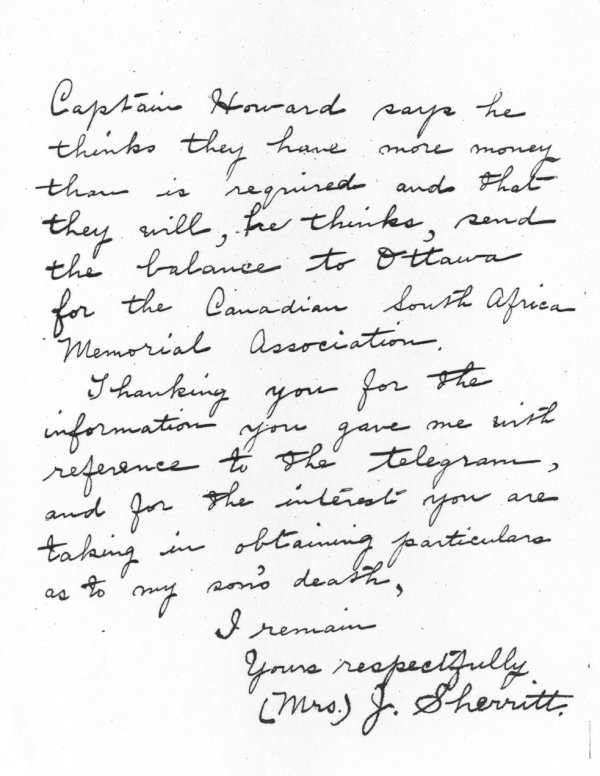 Captain Howard says he
thinks they have more money
than is required and that
they will, he thinks, send
the balance to Ottawa
for the Canadian South Africa
Memorial Association.
Thanking you for the
information you gave me with
reference to the telegram,
and for the interest you are
taking in obtaining particulars
as to my son's death,
I remain
Yours respectfully
(Mrs.) J. Sherritt.